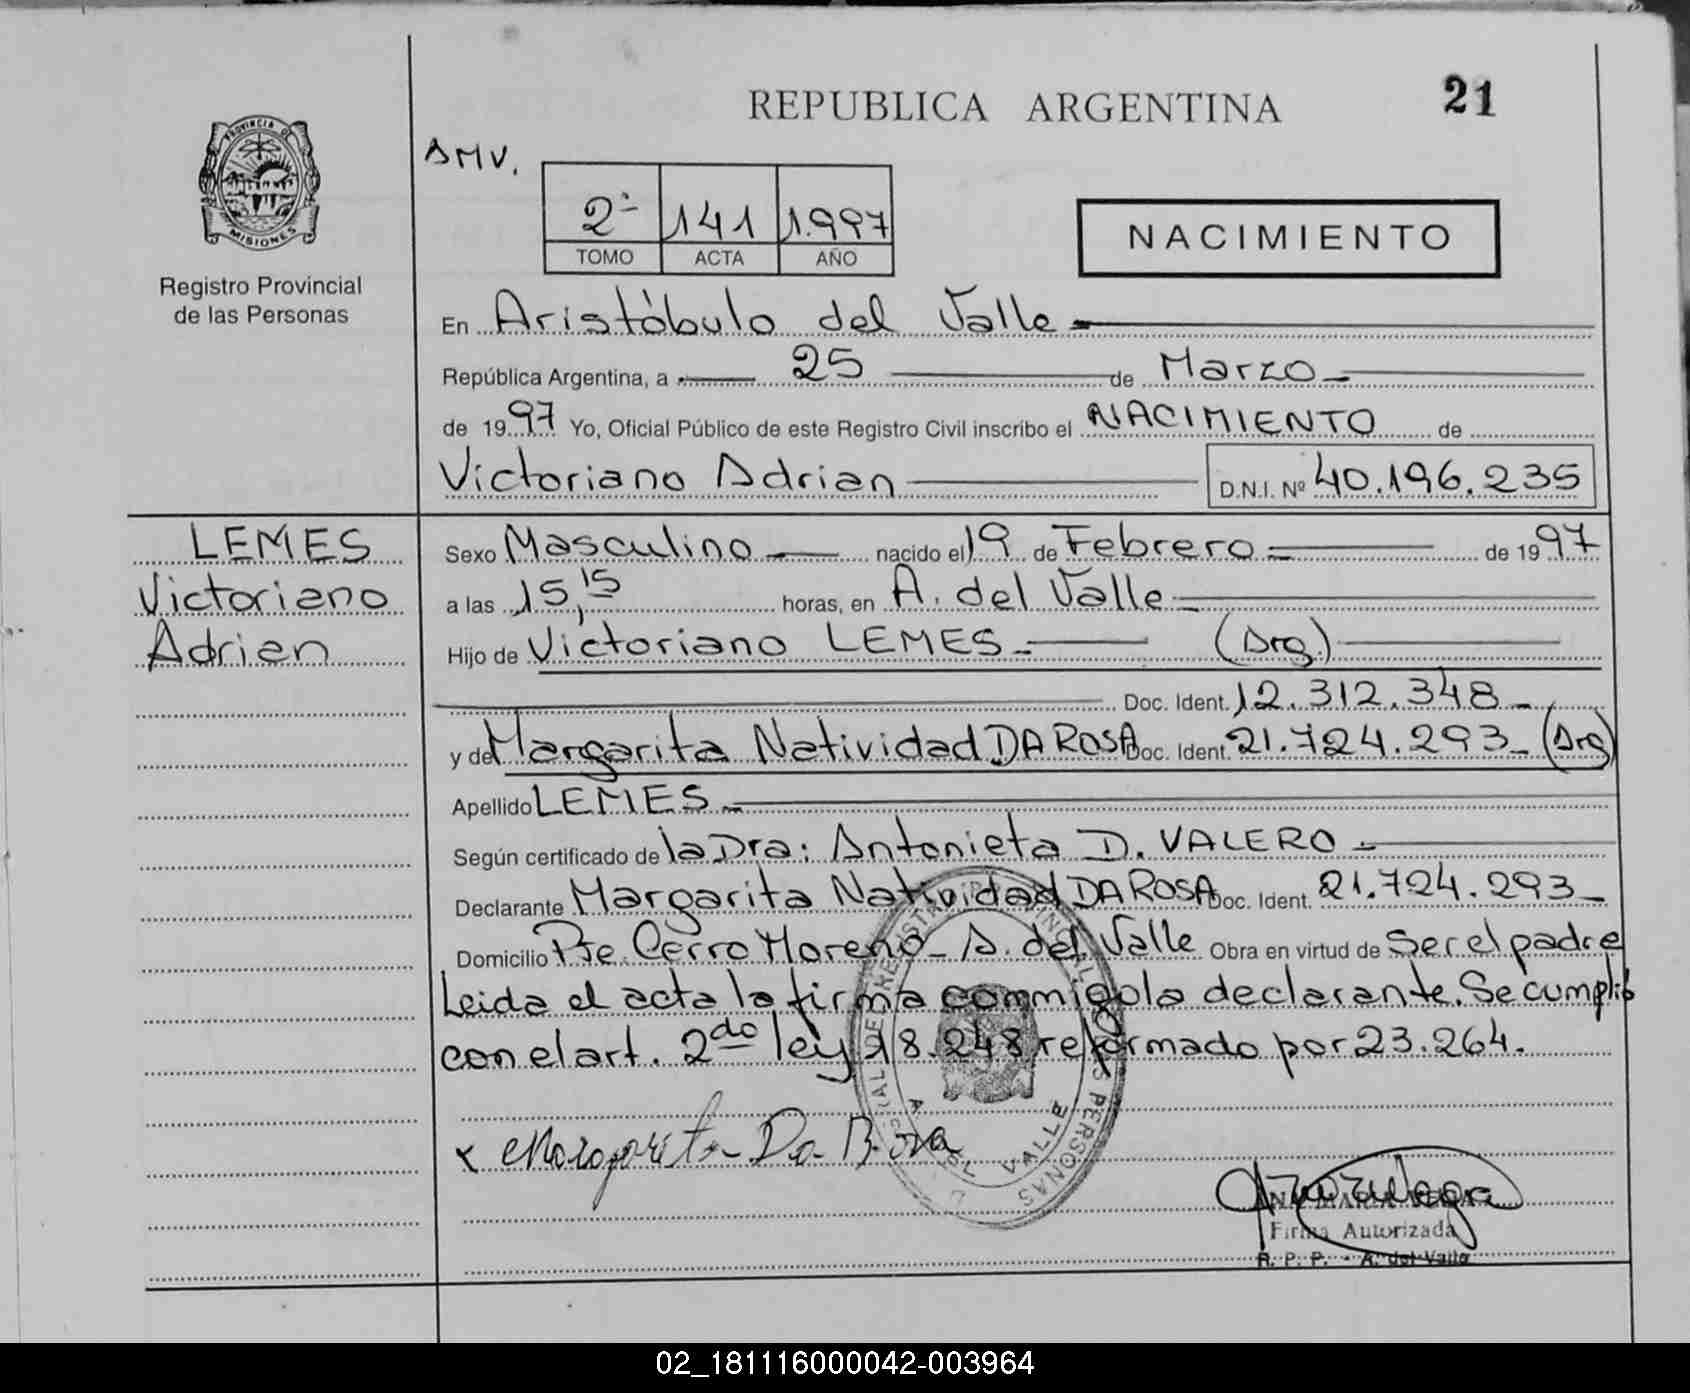 21
REPUBLICA ARGENTINA
PROVINCIA DE
MISIONES
Registro Provincial
de las Personas
AMV.
2º 141 1.997
TOMO ACTA AÑO
NACIMIENTO
En Aristóbulo del Valle
República Argentina, a 25 de Marzo
de 1997 Yo, Oficial Público de este Registro Civil inscribo el NACIMIENTO de
Victoriano Adrian D.N.I. Nº 40.196.235
LEMES
Victoriano
Adrian
Sexo Masculino nacido el 19 de Febrero de 1997
a las 15,15 horas, en A. del Valle
Hijo de Victoriano LEMES (Arg.)
Doc. Ident. 12.312.348
y de Margarita Natividad DA ROSA Doc. Ident. 21.724.293 (Arg)
Apellido LEMES
Según certificado de la Dra: Antonieta D. VALERO
Declarante Margarita Natividad DA ROSA Doc. Ident. 21.724.293
Domicilio Pje. Cerro Moreno - A. del Valle Obra en virtud de Ser el padre
Leida el acta la firma conmigo la declarante. Se cumplió
con el art. 2do ley 18.248 reformado por 23.264.
x Margarita Da Rosa
Firma Autorizada
R. P. P. - A. del Valle
02_181116000042-003964